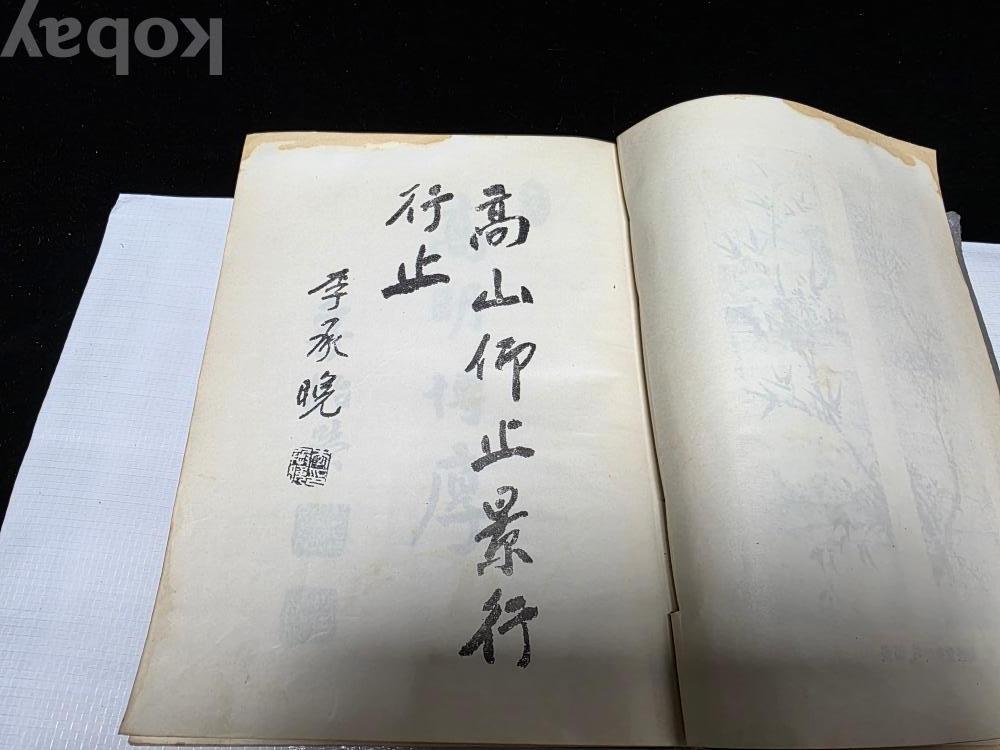 高山仰止景行
行止
李承晩
kobay